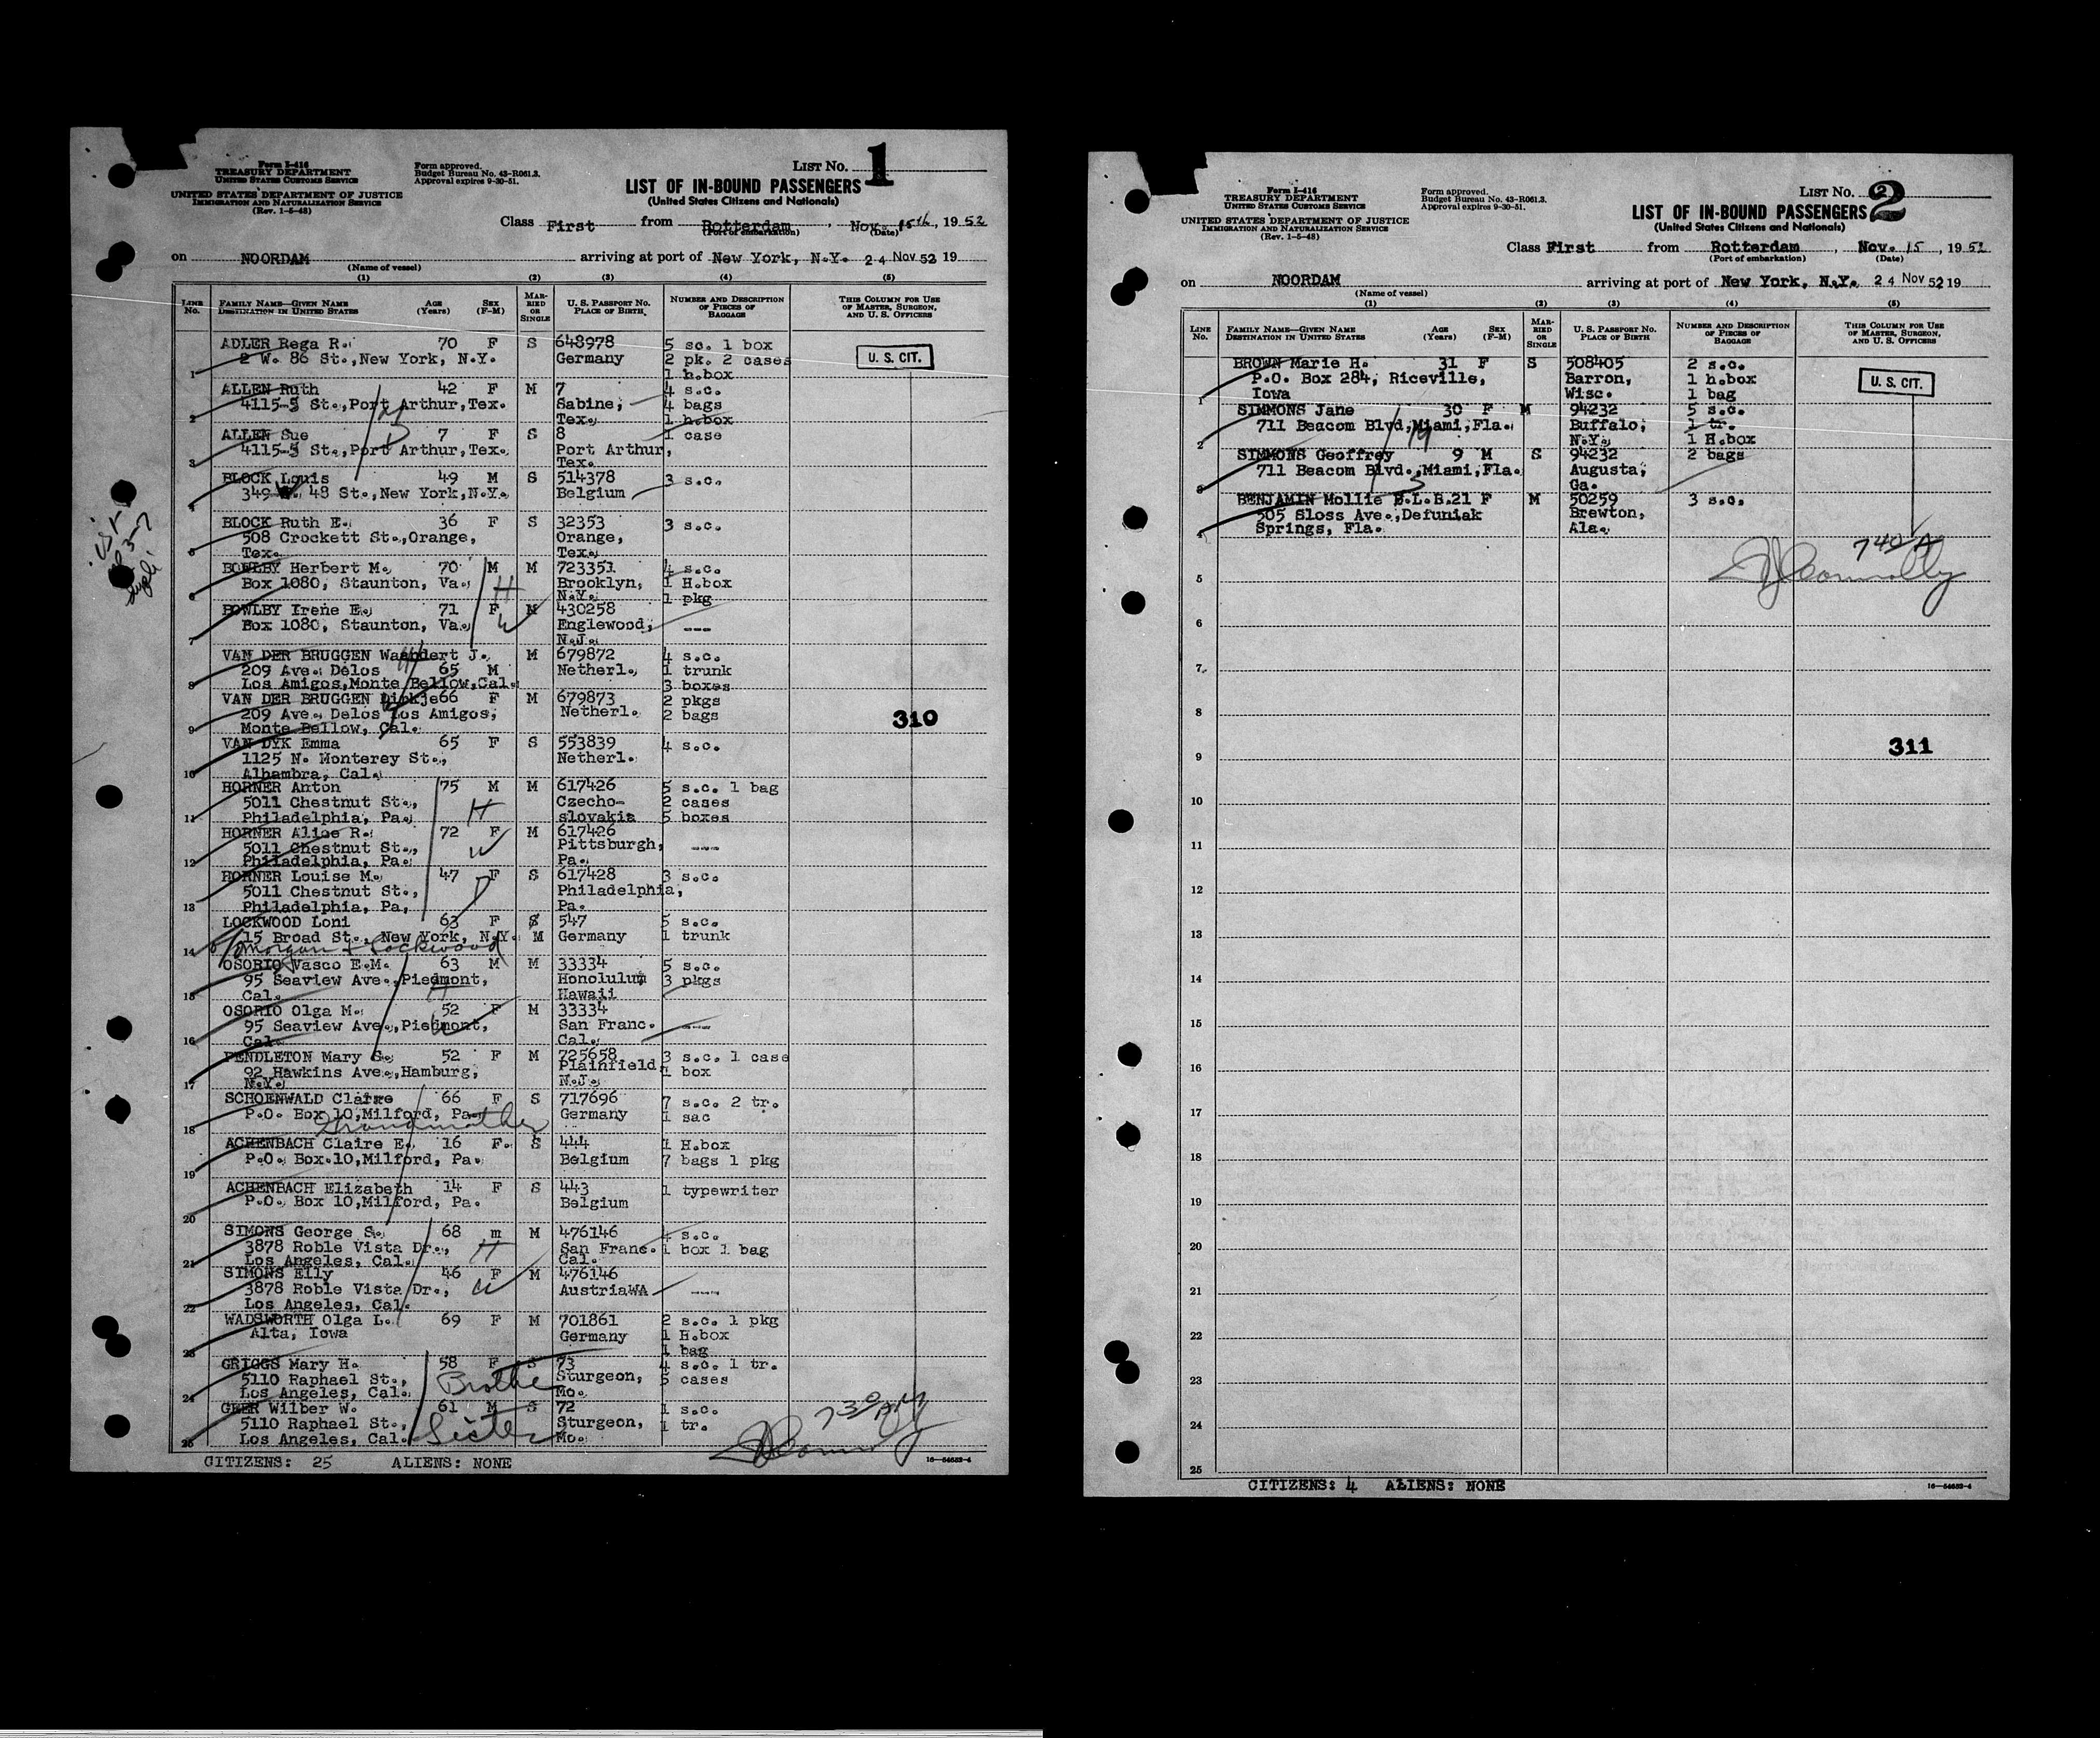 Form I-416
TREASURY DEPARTMENT
UNITED STATES CUSTOMS SERVICE
UNITED STATES DEPARTMENT OF JUSTICE
IMMIGRATION AND NATURALIZATION SERVICE
(Rev. 1-5-48)
Form approved.
Budget Bureau No. 43-R061.3.
Approval expires 9-30-51.
LIST No. 1
LIST OF IN-BOUND PASSENGERS
(United States Citizens and Nationals)
Class First from Rotterdam, Nov. 15th, 1952
(Port of embarkation) (Date)
on NOORDAM arriving at port of New York, N.Y. 24 Nov 52 19
(Name of vessel)
(1) (2) (3) (4) (5)
LINE No. FAMILY NAME—GIVEN NAME DESTINATION IN UNITED STATES AGE (Years) SEX (F-M) MARRIED OR SINGLE U. S. PASSPORT No. PLACE OF BIRTH NUMBER AND DESCRIPTION OF PIECES OF BAGGAGE THIS COLUMN FOR USE OF MASTER, SURGEON, AND U. S. OFFICERS
ADLER Rega R. 70 F S 648978 5 sc. 1 box
2 W. 86 St.,New York, N.Y. Germany 2 pk. 2 cases
1 1 h.box
U. S. CIT.
ALLEN Ruth 42 F M 7 4 s.c.
4115-5 St.,Port Arthur,Tex. Sabine, 4 bags
2 Tex. 1 h.box
ALLEN Sue 7 F S 8 1 case
4115-5 St.,Port Arthur,Tex. Port Arthur,
3 Tex.
BLOCK Louis 49 M S 514378 3 s.c.
349 W. 48 St.,New York,N.Y. Belgium
4
BLOCK Ruth E. 36 F S 32353 3 s.c.
508 Crockett St.,Orange, Orange,
5 Tex. Tex.
BOWLBY Herbert M. 70 M M 723351 4 s.c.
Box 1080, Staunton, Va. H Brooklyn, 1 H.box
6 N.Y. 1 pkg
BOWLBY Irene E. 71 F M 430258
Box 1080, Staunton, Va. W Englewood, ---
7 N.J.
VAN DER BRUGGEN Waandert J. M 679872 4 s.c.
209 Ave. Delos 65 M Netherl. 1 trunk
8 Los Amigos,Monte Bellow,Cal. 3 boxes
VAN DER BRUGGEN Dickje 66 F M 679873 2 pkgs
209 Ave. Delos Los Amigos, Netherl. 2 bags
9 Monte Bellow, Cal.
310
VAN DYK Emma 65 F S 553839 4 s.c.
1125 N. Monterey St., Netherl.
10 Alhambra, Cal.
HORNER Anton 75 M M 617426 5 s.c. 1 bag
5011 Chestnut St., H Czecho- 2 cases
11 Philadelphia, Pa. slovakia 5 boxes
HORNER Alice R. 72 F M 617426
5011 Chestnut St., W Pittsburgh, ---
12 Philadelphia, Pa. Pa.
HORNER Louise M. 47 F S 617428 3 s.c.
5011 Chestnut St., D Philadelphia,
13 Philadelphia, Pa, Pa.
LOCKWOOD Loni 63 F S 547 5 s.c.
15 Broad St., New York, N.Y. M Germany 1 trunk
14 c/o Morgan & Lockwood
OSORIO Vasco E.M. 63 M M 33334 5 s.c.
95 Seaview Ave.,Piedmont, Honolulum 3 pkgs
15 Cal. Hawaii
OSORIO Olga M. 52 F M 33334
95 Seaview Ave.,Piedmont, W San Franc. ---
16 Cal. Cal.
PENDLETON Mary G. 52 F M 725658 3 s.c. 1 case
92 Hawkins Ave.,Hamburg, Plainfield, 1 box
17 N.Y. N.J.
SCHOENWALD Claire 66 F S 717696 7 s.c. 2 tr.
P.O. Box 10,Milford, Pa. Germany 1 sac
18 Grandmother
ACHENBACH Claire E. 16 F. S 444 1 H.box
P.O. Box.10,Milford, Pa. Belgium 7 bags 1 pkg
19
ACHENBACH Elizabeth 14 F S 443 1 typewriter
P.O. Box 10,Milford, Pa. Belgium
20
SIMONS George S. 68 m M 476146 4 s.c.
3878 Roble Vista Dr., H San Franc. 1 box 1 bag
21 Los Angeles, Cal. Cal.
SIMONS Elly 46 F M 476146
3878 Roble Vista Dr., W AustriaWA ---
22 Los Angeles, Cal.
WADSWORTH Olga L. 69 F M 701861 2 s.c. 1 pkg
Alta, Iowa Germany 1 H.box
23 1 bag
GRIGGS Mary H. 58 F S 73 4 s.c. 1 tr.
5110 Raphael St., Brother Sturgeon, 5 cases
24 Los Angeles, Cal. Mo.
GEER Wilber W. 61 M S 72 1 s.c.
5110 Raphael St., Sister Sturgeon, 1 tr.
25 Los Angeles, Cal. Mo.
7 30 AM
CITIZENS: 25 ALIENS: NONE
16—54652-4
Form I-416
TREASURY DEPARTMENT
UNITED STATES CUSTOMS SERVICE
UNITED STATES DEPARTMENT OF JUSTICE
IMMIGRATION AND NATURALIZATION SERVICE
(Rev. 1-5-48)
Form approved.
Budget Bureau No. 43-R061.3.
Approval expires 9-30-51.
LIST No. 2
LIST OF IN-BOUND PASSENGERS
(United States Citizens and Nationals)
Class First from Rotterdam, Nov. 15, 1952
(Port of embarkation) (Date)
on NOORDAM arriving at port of New York, N.Y. 24 Nov 52 19
(Name of vessel)
(1) (2) (3) (4) (5)
LINE No. FAMILY NAME—GIVEN NAME DESTINATION IN UNITED STATES AGE (Years) SEX (F-M) MARRIED OR SINGLE U. S. PASSPORT No. PLACE OF BIRTH NUMBER AND DESCRIPTION OF PIECES OF BAGGAGE THIS COLUMN FOR USE OF MASTER, SURGEON, AND U. S. OFFICERS
BROWN Marie H. 31 F S 508405 2 s.c.
P.O. Box 284, Riceville, Barron, 1 h.box
1 Iowa Wisc. 1 bag
U. S. CIT.
SIMMONS Jane 30 F M 94232 5 s.c.
711 Beacom Blvd,Miami,Fla. M Buffalo, 1 tr.
2 N.Y. 1 H.box
SIMMONS Geoffrey 9 M S 94232 2 bags
711 Beacom Blvd.,Miami,Fla. Augusta,
3 S Ga.
BENJAMIN Mollie B.L.B. 21 F M 50259 3 s.c.
505 Sloss Ave.,Defuniak Brewton,
4 Springs, Fla. Ala.
7 40 A
Connolly
5
6
7
8
311
9
10
11
12
13
14
15
16
17
18
19
20
21
22
23
24
25
CITIZENS: 4 ALIENS: NONE
16—54652-4